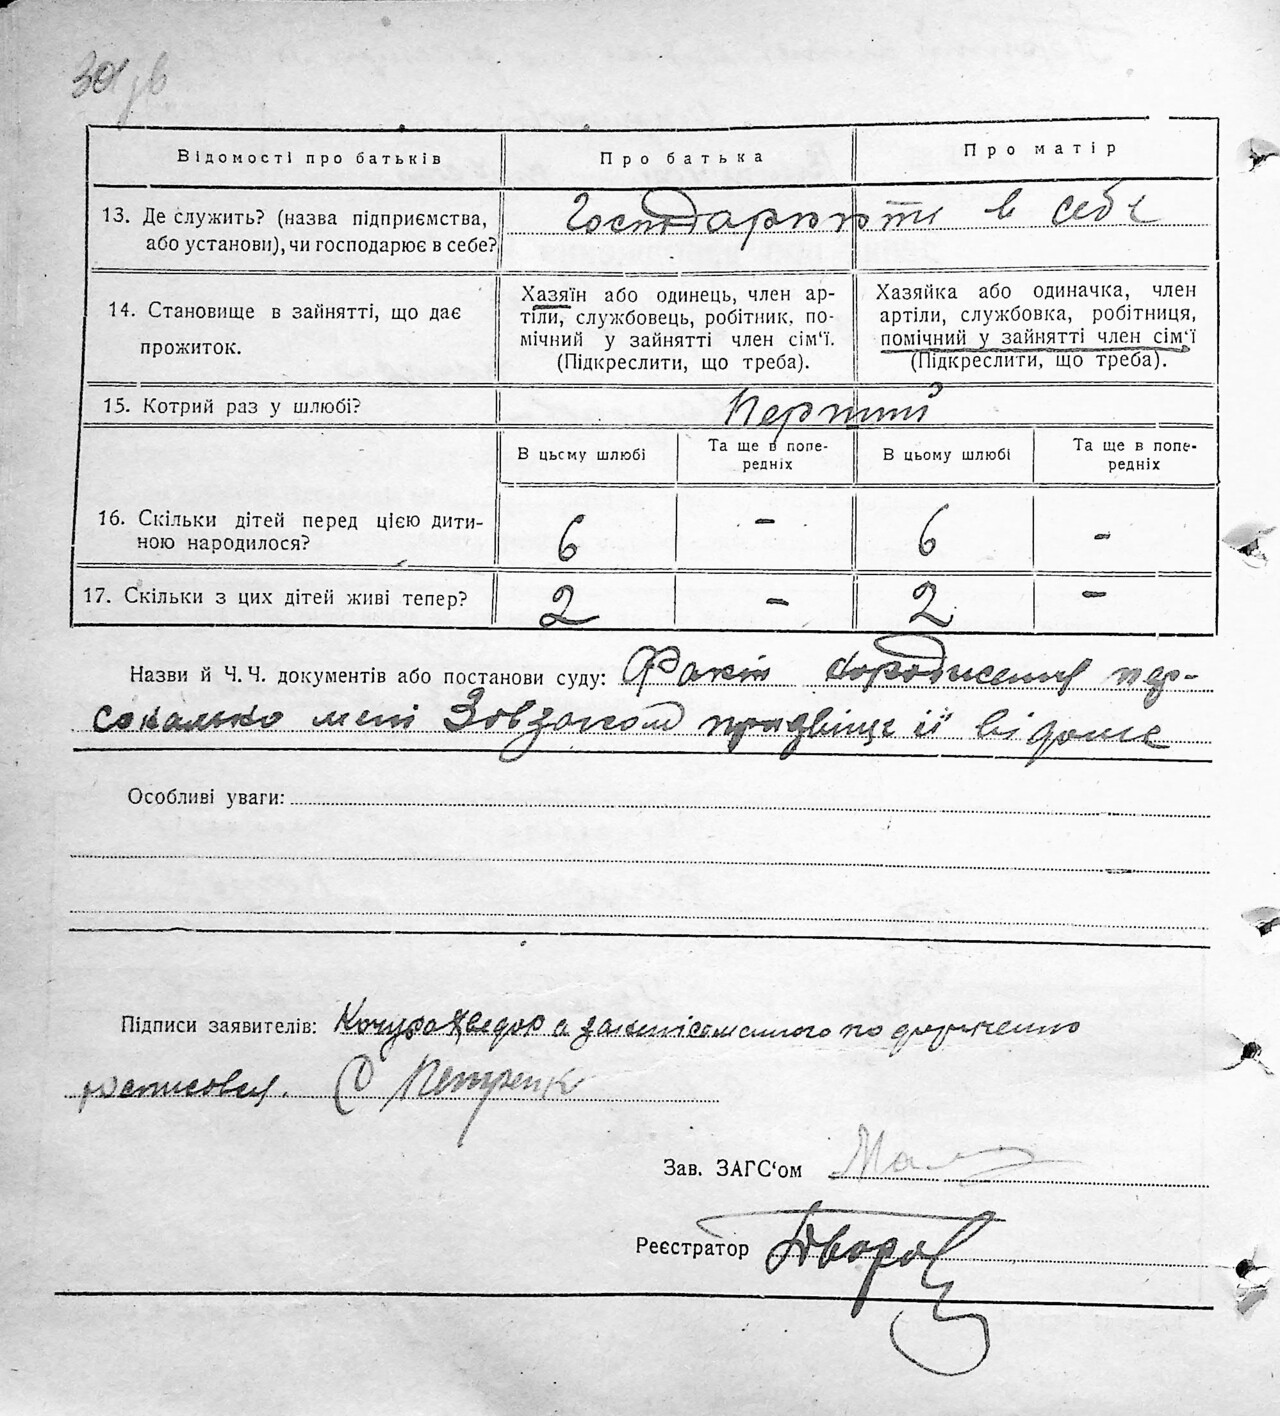 301 зв
Відомості про батьків
Про батька
Про матір
13. Де служить? (назва підприємства,
або установи), чи господарює в себе?
Господарюють в себе
14. Становище в зайнятті, що дає
прожиток.
Хазяїн або одинець, член ар-
тіли, службовець, робітник, по-
мічний у зайнятті член сім'ї.
(Підкреслити, що треба).
Хазяйка або одиначка, член
артіли, службовка, робітниця,
помічний у зайнятті член сім'ї
(Підкреслити, що треба).
15. Котрий раз у шлюбі?
Перший
В цьому шлюбі
Та ще в попе-
редніх
В цьому шлюбі
Та ще в попе-
редніх
16. Скільки дітей перед цією дити-
ною народилося?
6 - 6 -
17. Скільки з цих дітей живі тепер?
2 - 2 -
Назви й Ч. Ч. документів або постанови суду: Факт народження пер-
сонально мені прізвище її відоме
Особливі уваги:
Підписи заявителів: Кочура а за по
росписовся. Петренк
Зав. ЗАГС'ом
Реєстратор